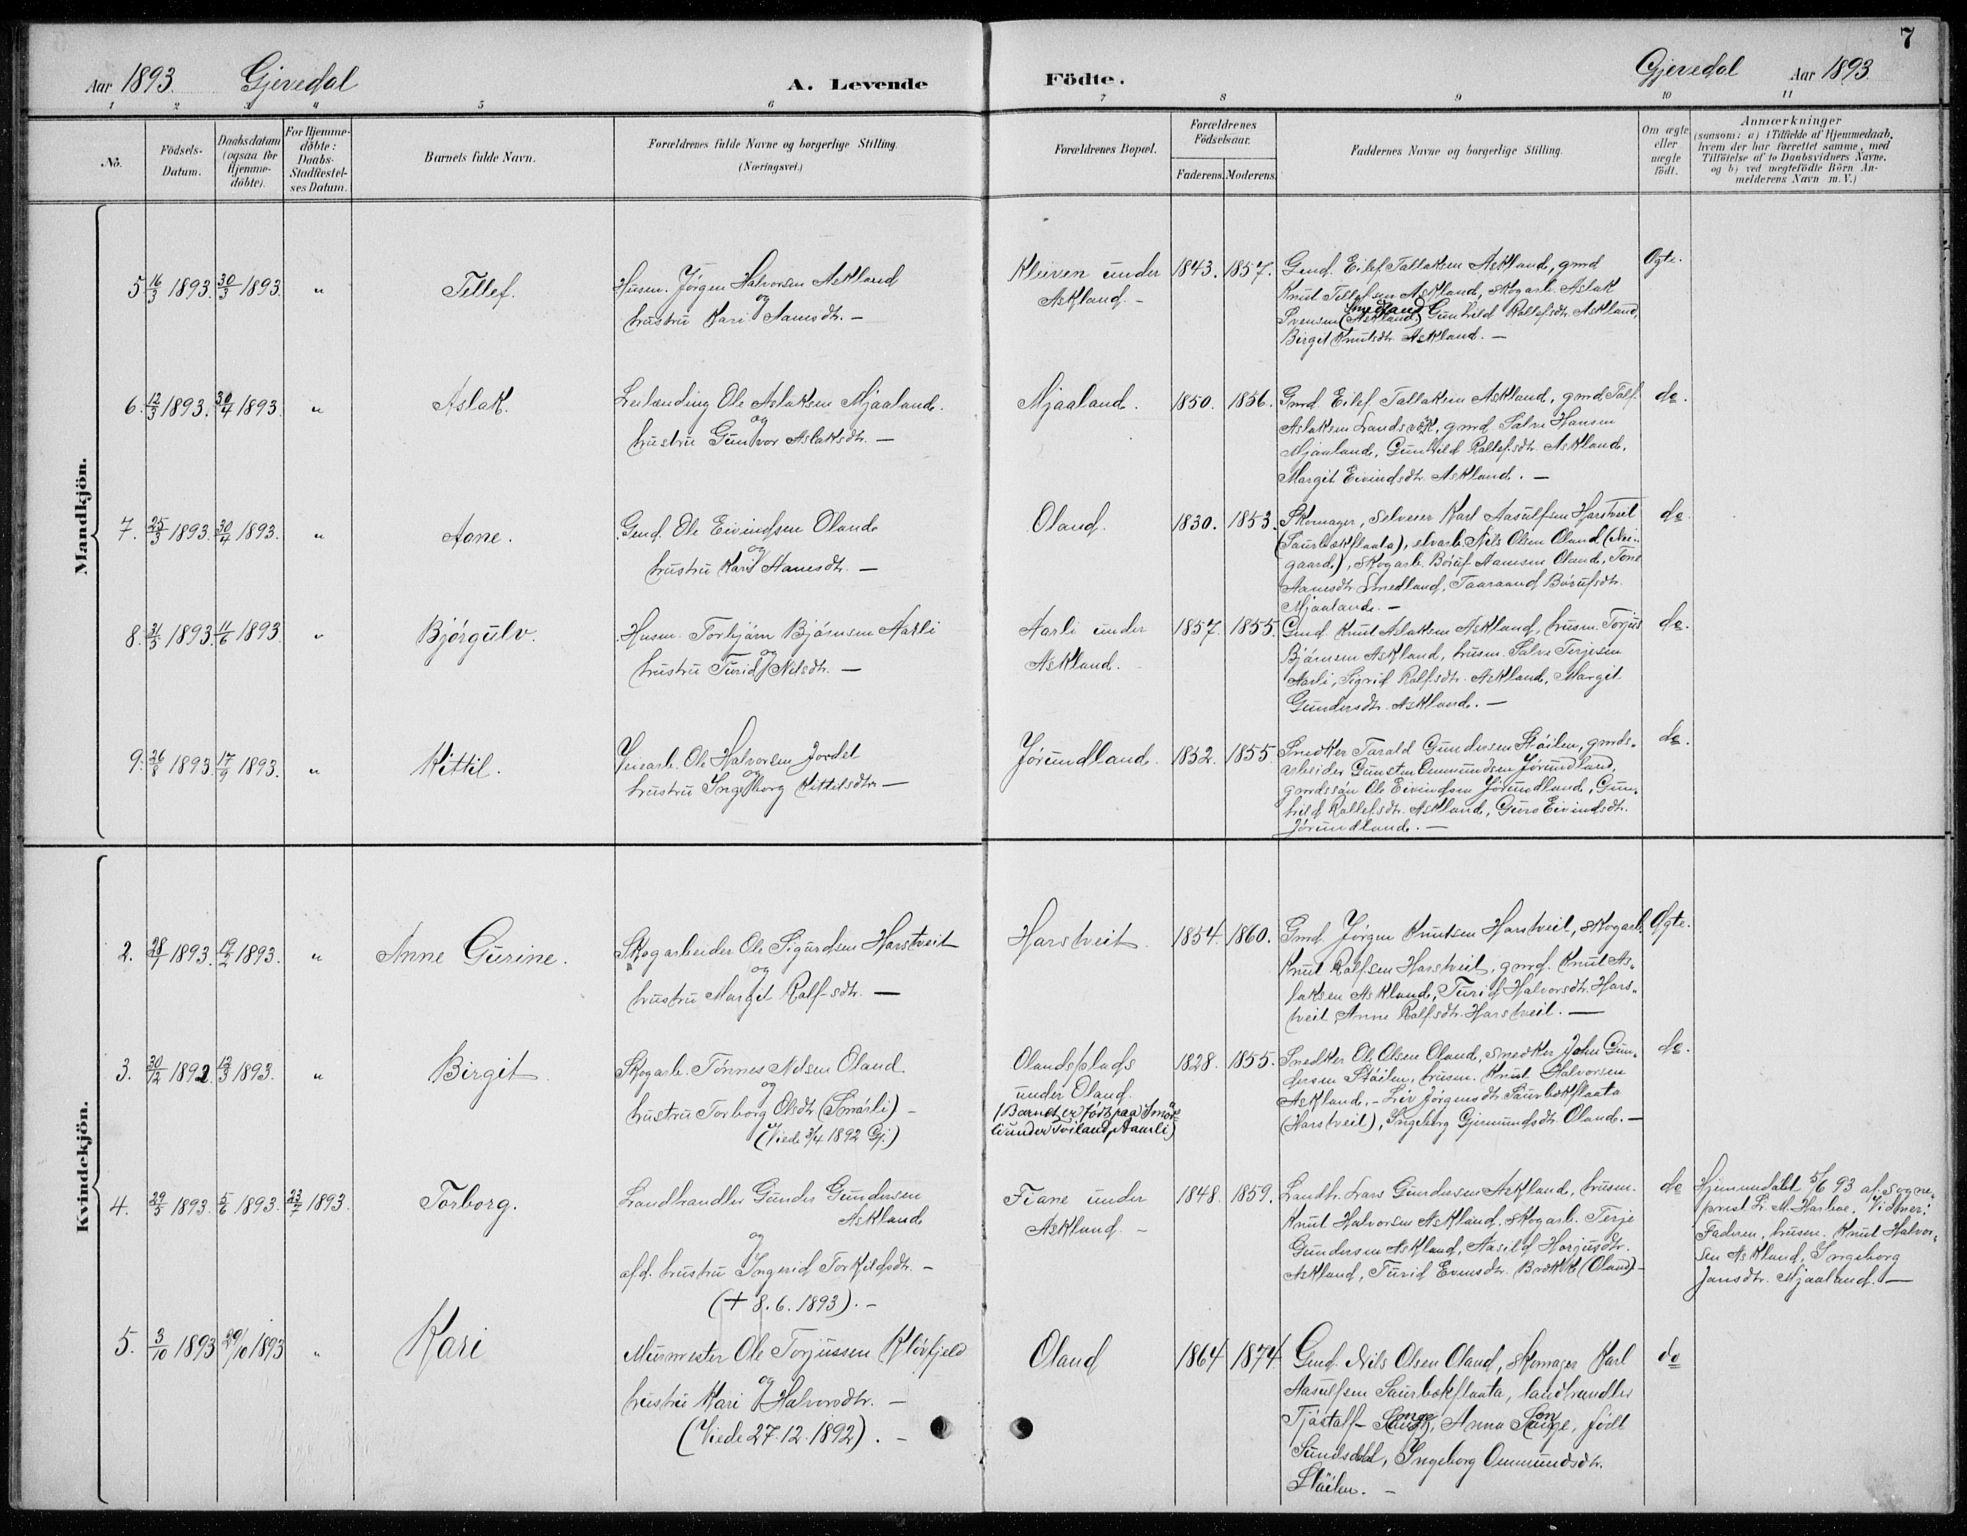 7
Aar 1893. Gjevedal A. Levende Födte. Gjevedal Aar 1893
1 2 3 4 5 6 7 8 9 10 11
No.
Födsels-
Datum.
Daabsdatum
(ogsaa for
Hjemme-
döbte).
For Hjemme-
döbte:
Daabs-
Stadfæstel-
ses Datum.
Barnets fulde Navn.
Forældrenes fulde Navne og borgerlige Stilling.
(Næringsvei.)
Forældrenes Bopæl.
Forældrenes
Födselsaar.
Faderens. Moderens.
Faddernes Navne og borgerlige Stilling.
Om ægte
eller
uægte
födt.
Anmærkninger
(saasom: a) i Tilfælde af Hjemmedaab,
hvem der har forrettet samme, med
Tilföielse af to Daabsvidners Navne.
og b) ved uægtefödte Börn An-
melderens Navn m. V.)
Mandkjön.
5 16/3 1893. 30/3 1893. " Tellef.
Husm. Jørgen Halvorsen Askland
og
hustru Kari Aamsdtr. —
Kleiven under
Askland. —
1843. 1857.
Gmd. Eilef Tallaksen Askland, gmd
Knut Tellefsen Askland, skogarb. Aslak
Svensen (Askland) Smedland Gunhild Rallefsdtr. Askland,
Birgit Knutsdtr. Askland. —
Ægte.
6. 12/3 1893. 30/4 1893. " Aslak.
Leilænding Ole Aslaksen Mjaaland.
og
hustru Gunvor Aslaksdtr. —
Mjaaland.
1850. 1856.
Gmd. Eilef Tallaksen Askland, gmd Tallf.
Aslaksen Landsvök, gmd Salve Hansen
Mjaaland, Gunhild Rallefsdtr. Askland,
Margit Eivindsdtr. Askland. —
do.
7. 25/3 1893. 30/4 1893. " Aane.
Gmd. Ole Eivindsen Oland
og
hustru Kari Aamsdtr. —
Oland.
1830. 1853.
Skomager, Selveier Karl Aasulfsen Harstveit
(Saurbækflaata), elvarb. Nils Olsen Oland (Nei-
gaard), skogarb. Børuf Aamsen Oland, Tone
Aamsdtr. Smedland, Taaraand Børufsdtr.
Mjaaland. —
do.
8. 31/5 1893. 11/6 1893. " Bjørgulv.
Husm. Torbjørn Bjørnsen Aarli
og
hustru Turid Nilsdtr. —
Aarli under
Askland.
1857. 1855.
Gmd. Knut Aslaksen Askland, husm. Torjus
Bjørnsen Askland, husm. Salve Terjesen
Aarli, Sigrid Rolfsdtr. Askland, Margit
Gundersdtr. Askland. —
do.
9. 26/8 1893. 17/9 1893. " Kittil.
Veiarb. Ole Halvorsen Jordet
og
hustru Ingeborg Kittilsdtr —
Jørundland.
1852. 1855.
Snedker Tarald Gundersen Støilen, gmds-
arbeider Gunsten Ommundsen Jørundland,
gmdssøn Ole Eivindsen Jørundland, Gun-
hild Rallefsdtr. Askland, Guro Eivindsdtr.
Jørundland. —
do.
Kvindekjön.
2. 28/1 1893. 19/2 1893. " Anne Gurine.
Skogarbeider Ole Sigurdsen Harstveit
og
hustru Margit Ralfsdtr. —
Harstveit.
1854. 1860.
Gmd. Jørgen Knutsen Harstveit, skogarb.
Knut Ralfsen Harstveit, gmd. Knut As-
laksen Askland, Turid Halvorsdtr. Hars-
tveit, Anne Ralfsdtr. Harstveit. —
Ægte.
3. 30/12 1892. 13/3 1893. " Birgit.
Skogarb. Tønnes Nilsen Oland
og
hustru Torborg Olsdtr (Smørli) —
(Viede 3/4 1892 Gj.)
Olandsplads
under Oland.
(Barnet er født paa Smør-
li under Tviland, Aamli)
1828. 1855.
Snedker Ole Olsen Oland, snedker John Gun-
dersen Støilen, husm. Knut Halvorsen
Askland. — Liv Jørgensdtr Saurbækflaata
(Harstveit), Ingeborg Gjermundsdtr. Oland. —
do.
4. 29/5 1893. 5/6 1893. 23/7 1893. Torborg.
Landhandler Gunder Gundersen
Askland
og
afd. hustru Ingerid Torkildsdtr. —
(+ 8.6.1893). —
Fiane under
Askland. —
1848. 1859.
Landh. Lars Gundersen Askland, husm.
Knut Halvorsen Askland, skogarb. Terje
Gundersen Askland, Aasild Horjusdtr.
Askland, Turid Evensdtr. Brækk (Oland) —
do
Hjemmedøbt 5/6 93 af sogne-
prest L. M. Harboe. Vidner:
Faderen, husm. Knut Halvor-
sen Askland, Ingeborg
Jansdtr. Mjaaland. —
5. 3/10 1893 29/10 1893 " Kari
Murmester Ole Torjussen Kløvfjeld
og
hustru Kari Halvorsdtr. —
(Viede 27.12.1892). —
Oland
1864 1874
Gmd. Nils Olsen Oland, skomager Karl
Aasulfsen Saurbækflaata, landhandler
Tjøstalf Songe, Anna Songe, født
Sundsdal, Ingeborg Ommundsdtr.
Støilen. —
do